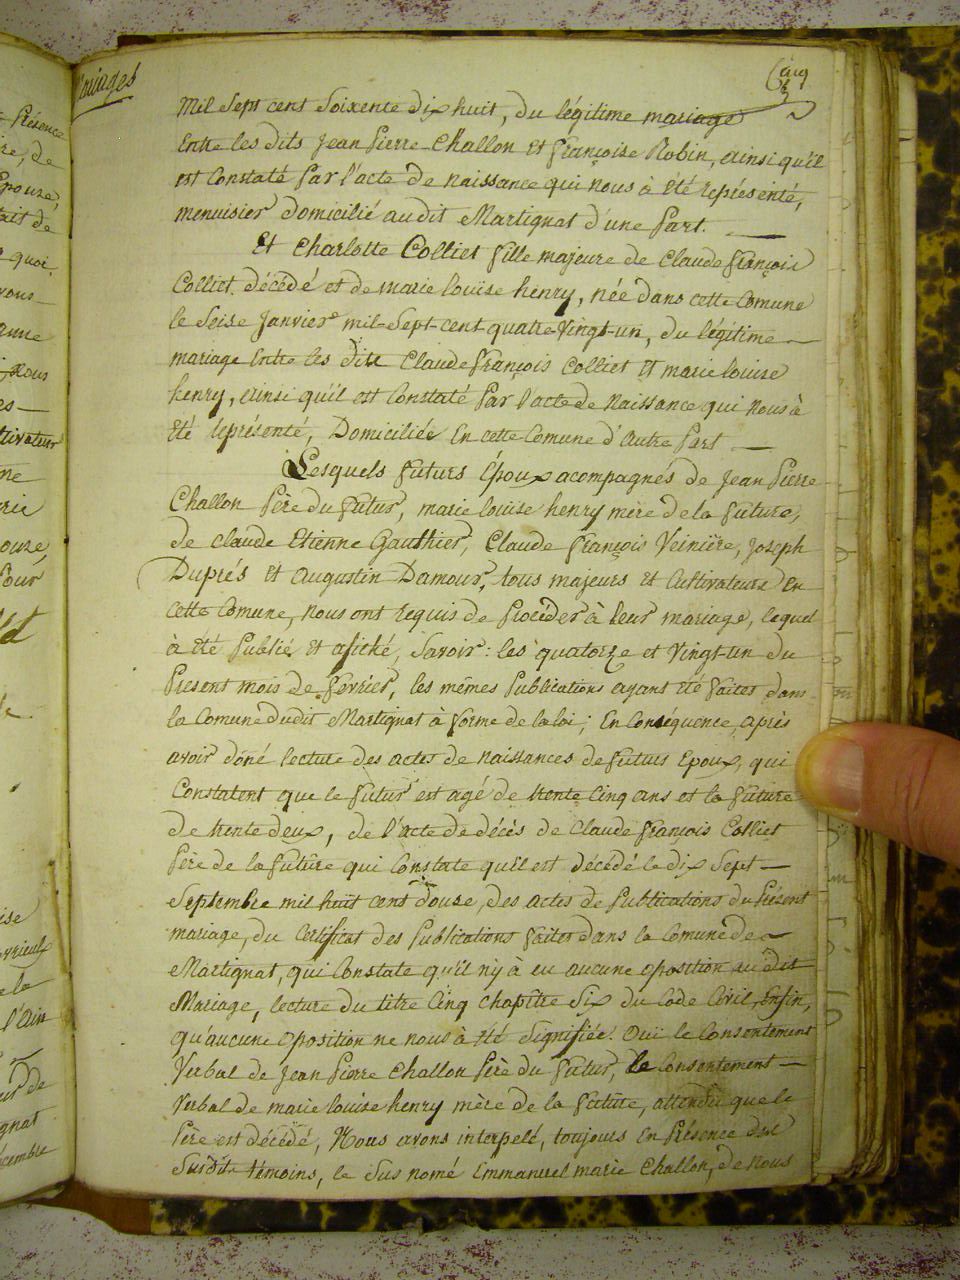 Présence
re, de
Epouse,
tait de
quoi,
vons
anne
Nous
es
ltivateurs
ne
rie
ouze,
Pour
ise
de la
l'Ain
de
gnat
cembre
Mariages
Cinq
mil Sept cent Soixente dix huit, du légitime mariage
Entre les dits Jean Pierre Challon et Françoise Robin, ainsi qu'il
est Constaté Par l'acte de naissance qui nous à été représenté,
menuisier domicilié audit Martignat d'une Part.
Et Charlotte Colliet fille majeure de Claude françois
Colliet décédé et de marie louise henry, née dans cette Comune
le Seise Janvier mil-Sept-cent quatre-Vingt-un, du légitime
mariage Entre les dits Claude François Colliet et marie louise
henry, ainsi qu'il est Constaté Par l'acte de Naissance qui nous à
été représenté, Domiciliée En cette Comune d'autre Part
Lesquels Futurs Époux acompagnés de Jean Pierre
Challon Père du Futur, marie louise henry mère de la Future,
de Claude Etienne Gauthier, Claude François Veinière, Joseph
Duprés et Augustin Damour, tous majeurs et Cultivateurs En
cette Comune, nous ont requis de Procéder à leur mariage, lequel
à été Publié et afiché, Savoir: les quatorze et Vingt-un du
Présent mois de Février, les mêmes Publications ayant été Faites dans
la Comune dudit Martignat à forme de la loi; En Conséquence, après
avoir doné lecture des actes de naissances de Futurs Epoux, qui
Constatent que le Futur est agé de trente Cinq ans et la Future
de trente deux, de l'acte de décés de Claude François Colliet
Père de la Future qui Constate qu'il est décédé le dix Sept
Septembre mil huit cent douse, des actes de Publications du Présent
mariage, du Certificat des Publications Faites dans la Comune de
Martignat, qui Constate qu'il n'y à eu aucune oposition au dit
Mariage, lecture du titre Cinq chapître Six du Code Civil, Enfin,
qu'aucune oposition ne nous à été Signifiée. Oui le Consentement
Verbal de Jean Pierre Challon Père du Futur, le Consentement
Verbal de marie louise henry mère de la Future, attendu que le
Père est décédé, Nous avons interpelé, toujours En Présence des
Susdits témoins, le Sus nomé Emmanuel marie Challon, de nous